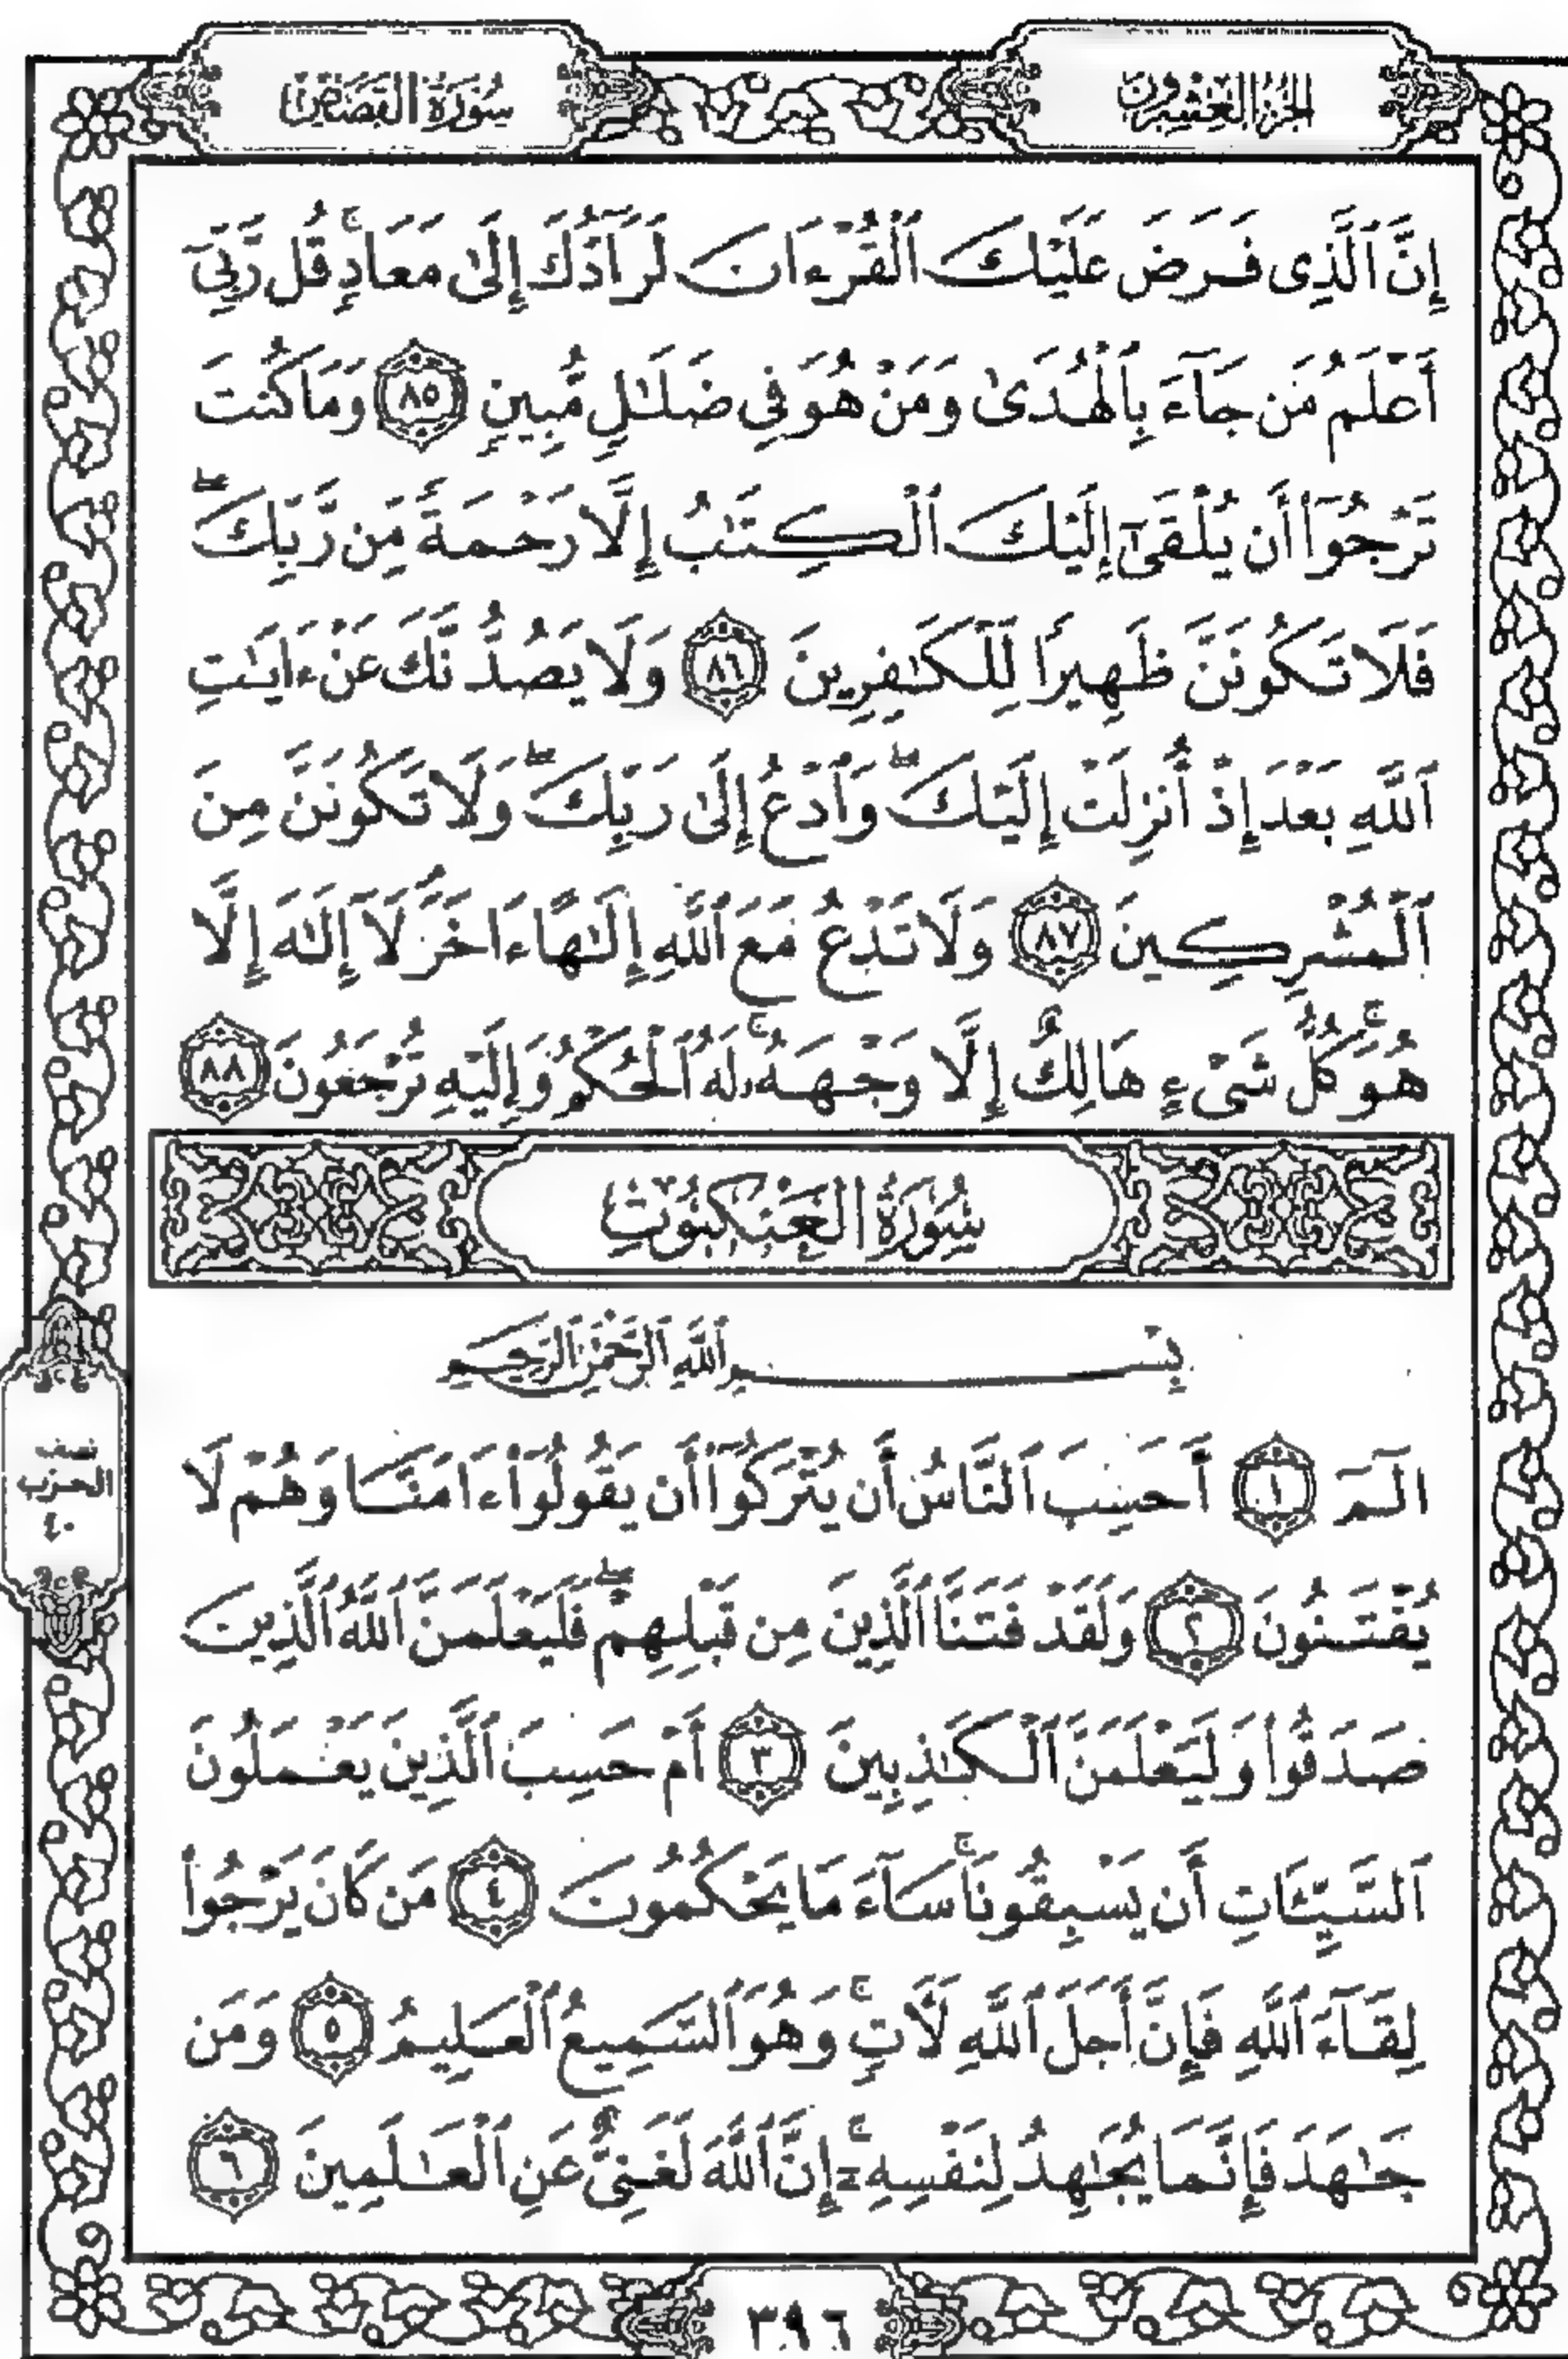 الجزء العشرون
سورة القصص
إِنَّ ٱلَّذِى فَرَضَ عَلَيْكَ ٱلْقُرْءَانَ لَرَآدُّكَ إِلَىٰ مَعَادٍۚ قُل رَّبِّىٓ
أَعْلَمُ مَن جَآءَ بِٱلْهُدَىٰ وَمَنْ هُوَ فِى ضَلَٰلٍ مُّبِينٍ ٨٥ وَمَا كُنتَ
تَرْجُوٓا۟ أَن يُلْقَىٰٓ إِلَيْكَ ٱلْكِتَٰبُ إِلَّا رَحْمَةً مِّن رَّبِّكَۖ
فَلَا تَكُونَنَّ ظَهِيرًا لِّلْكَٰفِرِينَ ٨٦ وَلَا يَصُدُّنَّكَ عَنْ ءَايَٰتِ
ٱللَّهِ بَعْدَ إِذْ أُنزِلَتْ إِلَيْكَۖ وَٱدْعُ إِلَىٰ رَبِّكَۖ وَلَا تَكُونَنَّ مِنَ
ٱلْمُشْرِكِينَ ٨٧ وَلَا تَدْعُ مَعَ ٱللَّهِ إِلَٰهًا ءَاخَرَۘ لَآ إِلَٰهَ إِلَّا
هُوَۚ كُلُّ شَىْءٍ هَالِكٌ إِلَّا وَجْهَهُۥۚ لَهُ ٱلْحُكْمُ وَإِلَيْهِ تُرْجَعُونَ ٨٨
سُورَةُ العَنْكَبُوتِ
بِسْمِ ٱللَّهِ ٱلرَّحْمَٰنِ ٱلرَّحِيمِ
الٓمٓ ١ أَحَسِبَ ٱلنَّاسُ أَن يُتْرَكُوٓا۟ أَن يَقُولُوٓا۟ ءَامَنَّا وَهُمْ لَا
يُفْتَنُونَ ٢ وَلَقَدْ فَتَنَّا ٱلَّذِينَ مِن قَبْلِهِمْۖ فَلَيَعْلَمَنَّ ٱللَّهُ ٱلَّذِينَ
صَدَقُوا۟ وَلَيَعْلَمَنَّ ٱلْكَٰذِبِينَ ٣ أَمْ حَسِبَ ٱلَّذِينَ يَعْمَلُونَ
ٱلسَّيِّـَٔاتِ أَن يَسْبِقُونَاۚ سَآءَ مَا يَحْكُمُونَ ٤ مَن كَانَ يَرْجُوا۟
لِقَآءَ ٱللَّهِ فَإِنَّ أَجَلَ ٱللَّهِ لَـَٔاتٍۚ وَهُوَ ٱلسَّمِيعُ ٱلْعَلِيمُ ٥ وَمَن
جَٰهَدَ فَإِنَّمَا يُجَٰهِدُ لِنَفْسِهِۦٓۚ إِنَّ ٱللَّهَ لَغَنِىٌّ عَنِ ٱلْعَٰلَمِينَ ٦
نصف
الحزب
٤٠
٣٩٦